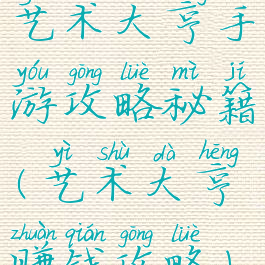 艺术大亨手
yóu gōng lüè mì jí
游攻略秘籍
yì shù dà hēng
(艺术大亨
zhuàn qián gōng lüè
赚钱攻略)